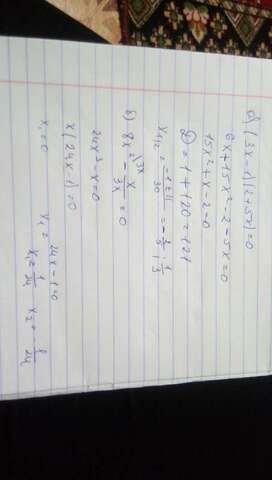 б) (3x-1)(2+5x)=0
6x+15x²-2-5x=0
15x²+x-2=0
D=1+120=121
x₁,₂ = -1±11/30 = -2/5; 1/3
б) 8x² - x/3x = 0 |3x
24x³-x=0
x(24x-1)=0
x₁=0 24x-1=0
x₁=1/24 x₂=-1/24